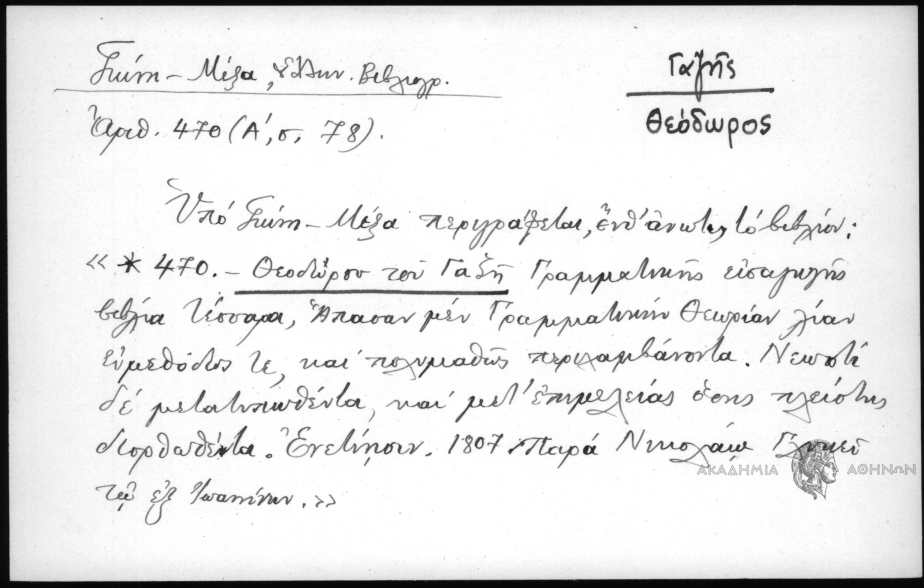 Γκίνη – Μέξα, Ἑλλην. Βιβλιογρ.
Γαζῆς
Θεόδωρος
Ἀριθ. 470 (Α΄, σ. 78).
Ὑπό Γκίνη – Μέξα περιγράφεται, ἔνθ' ἀνωτ., τό βιβλίον:
« * 470. – Θεοδώρου τοῦ Γαζῆ Γραμματικῆς εἰσαγωγῆς
βιβλία τέσσαρα, Ἅπασαν μέν Γραμματικήν Θεωρίαν λίαν
εὐμεθόδως τε, καί πολυμαθῶς περιλαμβάνοντα. Νεωστί
δέ μετατυπωθέντα, καί μετ' ἐπιμελείας ὅσης πλείστης
διορθωθέντα. Ἐνετίησιν. 1807. Παρά Νικολάῳ Γλυκεῖ
τῷ ἐξ Ἰωαννίνων. »
ΑΚΑΔΗΜΙΑ ΑΘΗΝΩΝ